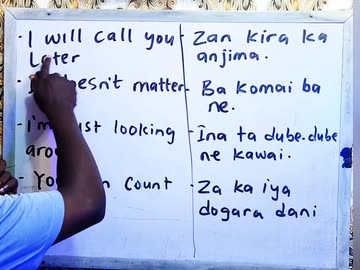 - I will call you
Later
doesn't matter
- i'm looking
- count
- Zan kira ka
anjima.
- Ba komai ba
ne.
- Ina ta dube-dube
ne kawai.
- Za ka iya
dogara dani